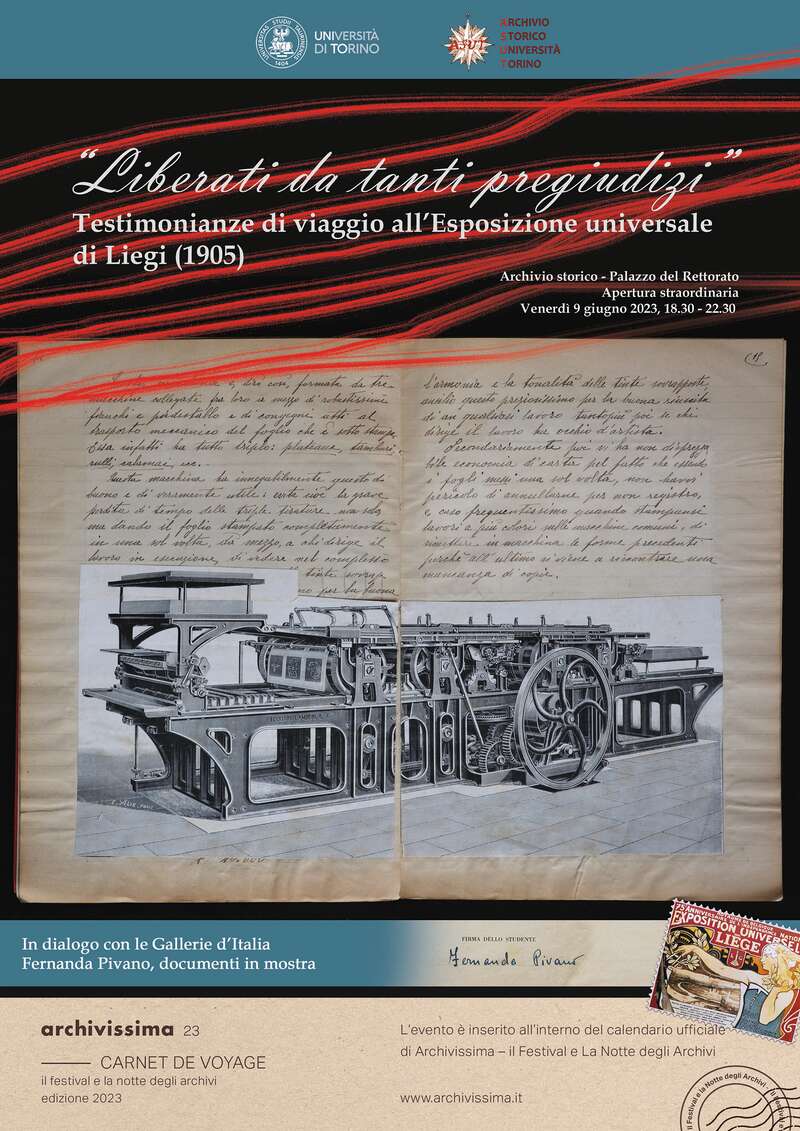 UNIVERSITÀ
DI TORINO
UNIVERSITAS STUDII TAURINENSIS
1404
ASUT
ARCHIVIO
STORICO
UNIVERSITÀ
TORINO
“Liberati da tanti pregiudizi”
Testimonianze di viaggio all’Esposizione universale
di Liegi (1905)
Archivio storico - Palazzo del Rettorato
Apertura straordinaria
Venerdì 9 giugno 2023, 18.30 - 22.30
formata da tre
macchine collegate fra loro a mezzo di robustissimi
fianchi e piedistallo e di congegni atti al
trasporto meccanico del foglio che è sotto stampa.
Essa infatti ha tutto triplo: plateaux, tamburi,
rulli, calamai, ecc.
Questa macchina ha innegabilmente questo di
buono e di veramente utile: evita cioè la grave
perdita di tempo delle triple tirature non solo,
ma dando il foglio stampato completamente
in una sol volta, dà mezzo, a chi dirige il
lavoro in esecuzione, di vedere nel complesso
tinte sovrap
per la buona
l’armonia e la tonalità delle tinte sovrapposte,
ausilio questo preziosissimo per la buona riuscita
di un qualsiasi lavoro tantopiù poi se chi
dirige il lavoro ha occhio d’artista.
Secondariamente poi vi ha non disprezza
bile economia di carta pel fatto che essendo
i fogli messi una sol volta, non havvi
pericolo di annullarne per non registro,
e caso frequentissimo quando stampansi
lavori a più colori sulle macchine comuni, di
rimettere in macchina le forme precedenti
perché all’ultimo si viene a riscontrare una
mancanza di copie.
In dialogo con le Gallerie d’Italia
Fernanda Pivano, documenti in mostra
FIRMA DELLO STUDENTE
Fernanda Pivano
EXPOSITION UNIVERSELLE
LIEGE
archivissima 23
CARNET DE VOYAGE
il festival e la notte degli archivi
edizione 2023
L’evento è inserito all’interno del calendario ufficiale
di Archivissima – il Festival e La Notte degli Archivi
www.archivissima.it
il Festival e la Notte degli Archivi -